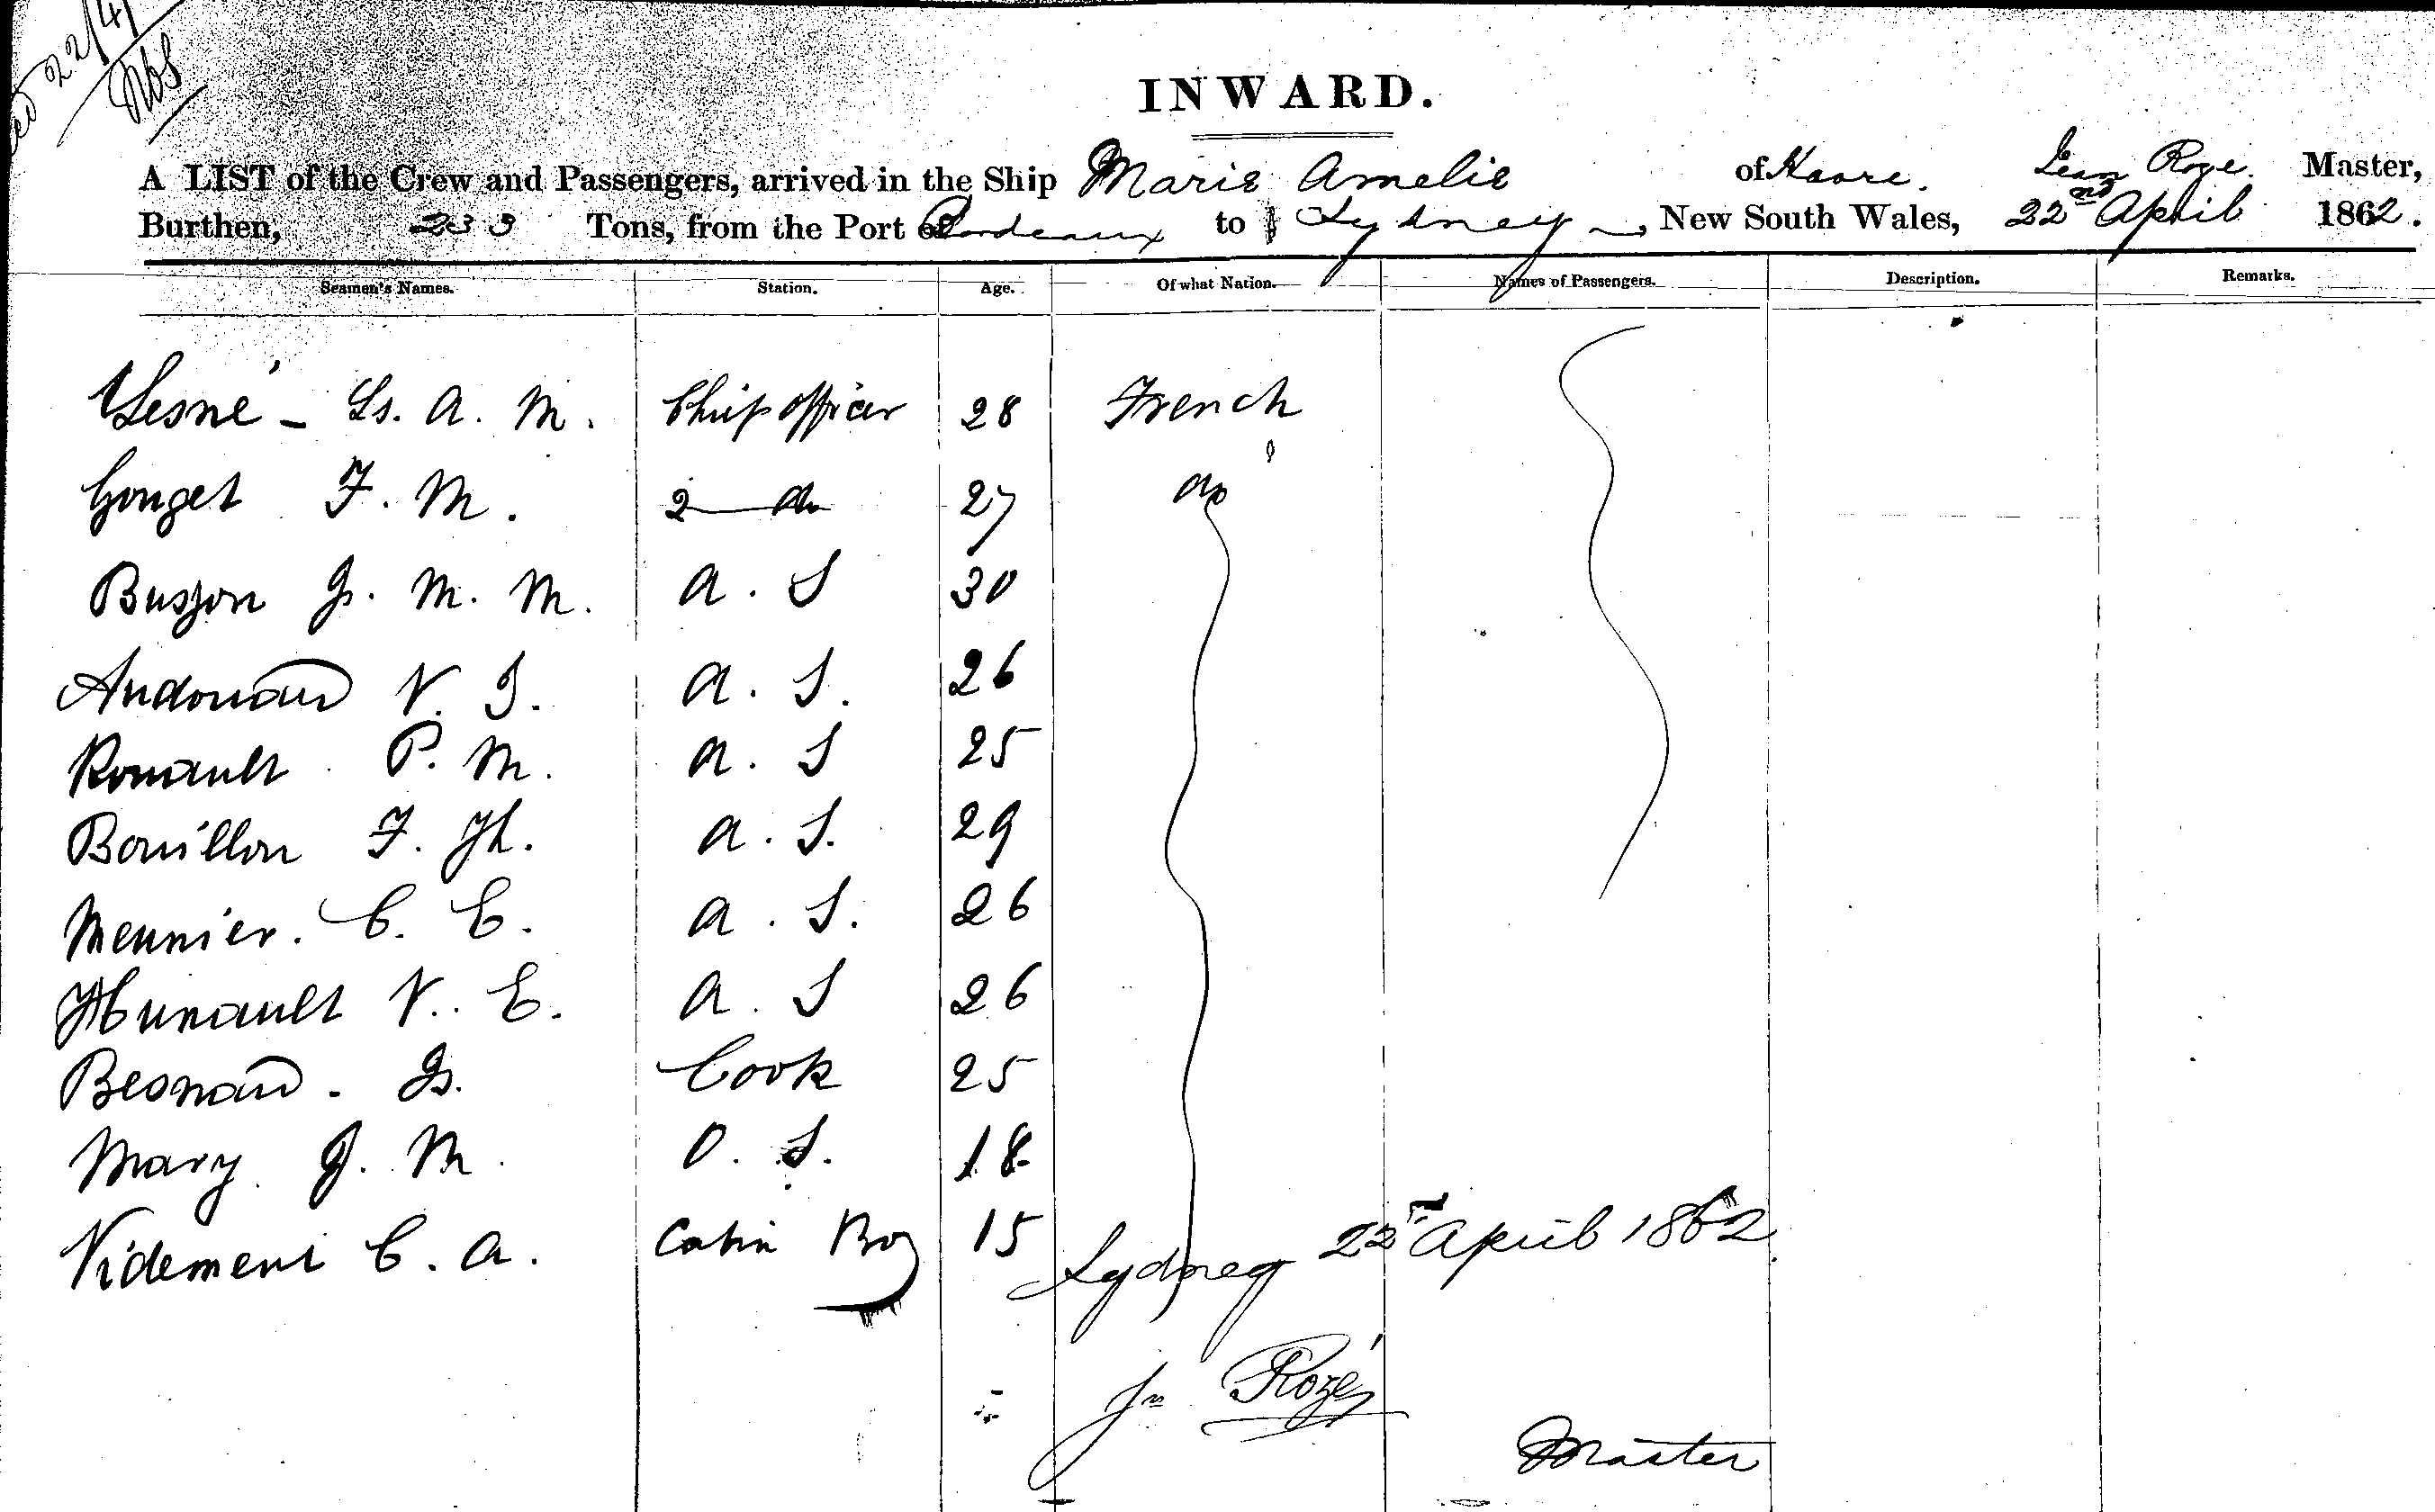 22/4
INWARD.
A LIST of the Crew and Passengers, arrived in the Ship Marie Amelie of Havre. Jean Roze. Master,
Burthen, 233 Tons, from the Port of Bordeaux to Sydney New South Wales, 22nd April 1862.
Seamen's Names. Station. Age. Of what Nation. Names of Passengers. Description. Remarks.
Lesné - Ls. A. M. Chief officer 28 French
Gouget F. M. 2 do 27 do
Busson J. M. M. A. S 30
Andouard V. J. A. S. 26
Rouault P. M. A. S 25
Bouillon F. Jh. A. S. 29
Meunier. C. E. A. S. 26
Hunault V. E. A. S 26
Besnard - Js. Cook 25
Mary J. M. O. S. 18
Videment C. A. Cabin Boy 15
Sydney 22nd April 1862
Jn Rozé
Master